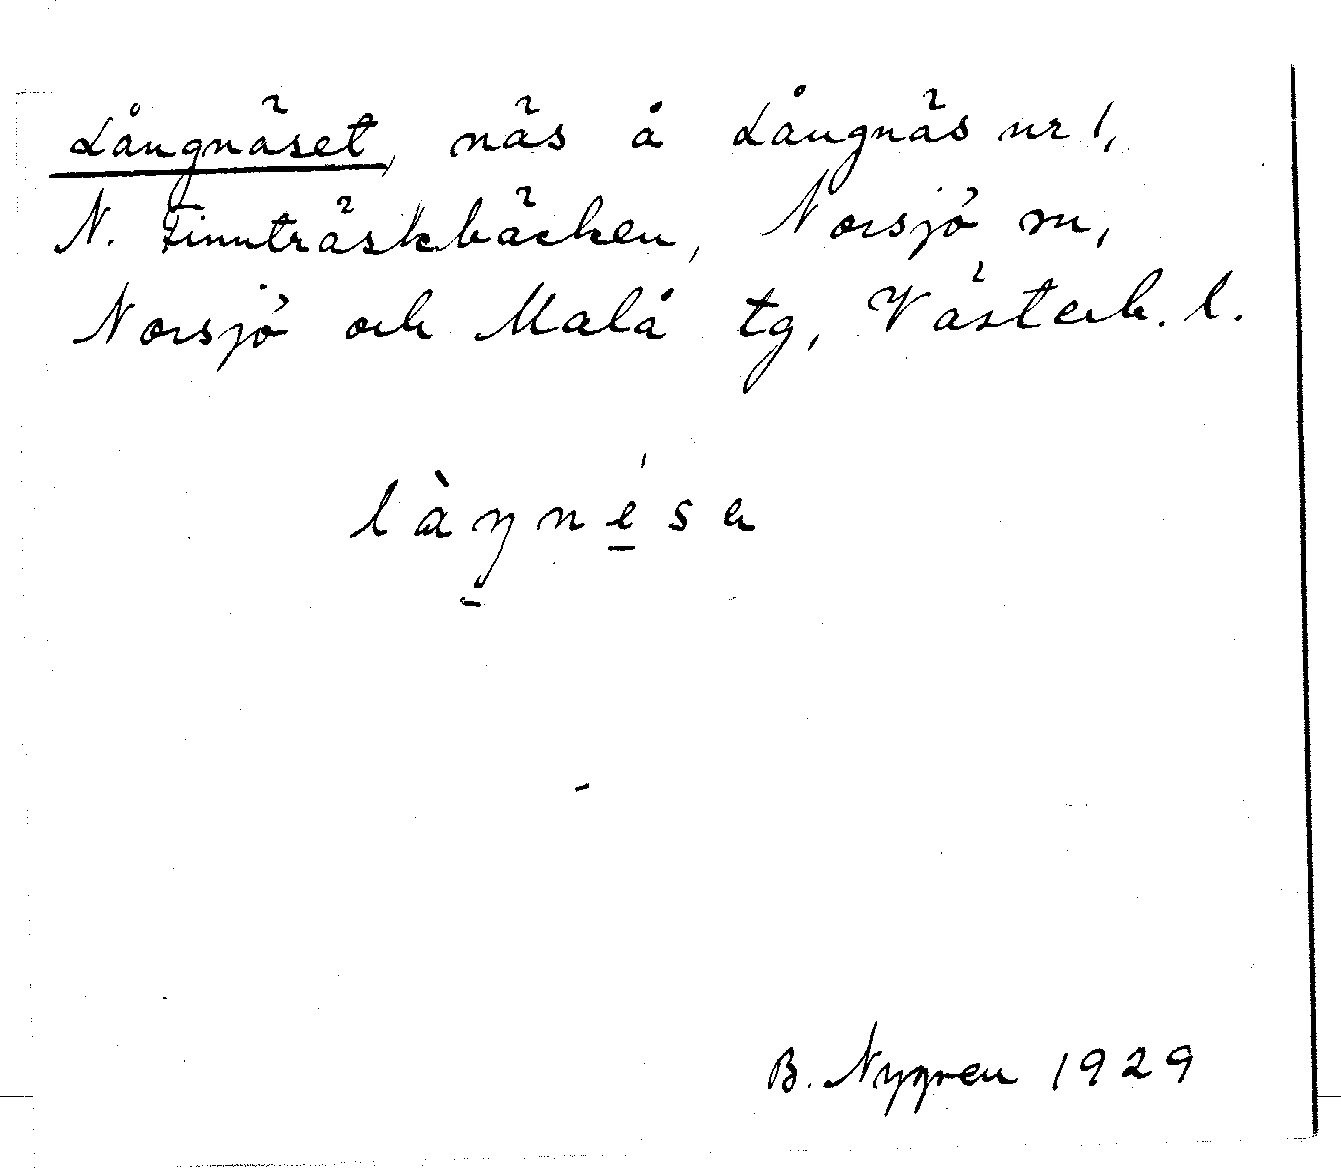 Långnäset, näs å Långnäs nr 1,
N. Finnträskbäcken, Norsjö sn,
Norsjö och Malå tg, Västerb. l.
làŋnésa
B. Nygren 1929